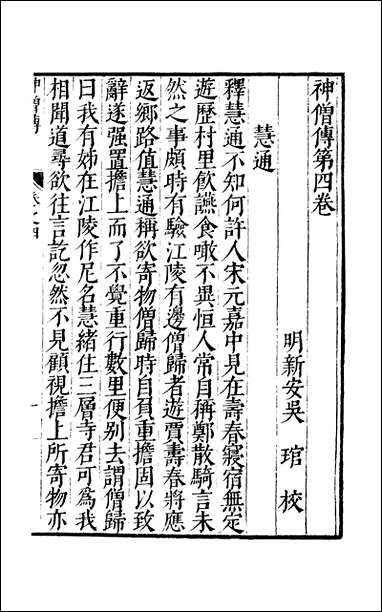 神僧傳第四卷
明新安吳琯校
慧通
釋慧通不知何許人宋元嘉中見在壽春寢宿無定
遊歷村里飲讌食噉不異恒人常自稱鄭散騎言未
然之事頗時有驗江陵有邊僧歸者遊賈壽春將應
返鄉路值慧通稱欲寄物僧歸時自負重擔固以致
辭遂强置擔上而了不覺重行數里便别去謂僧歸
曰我有姊在江陵作尼名慧緒住三層寺君可爲我
相聞道尋欲往言訖忽然不見顧視擔上所寄物亦
神僧傳 卷之四 一